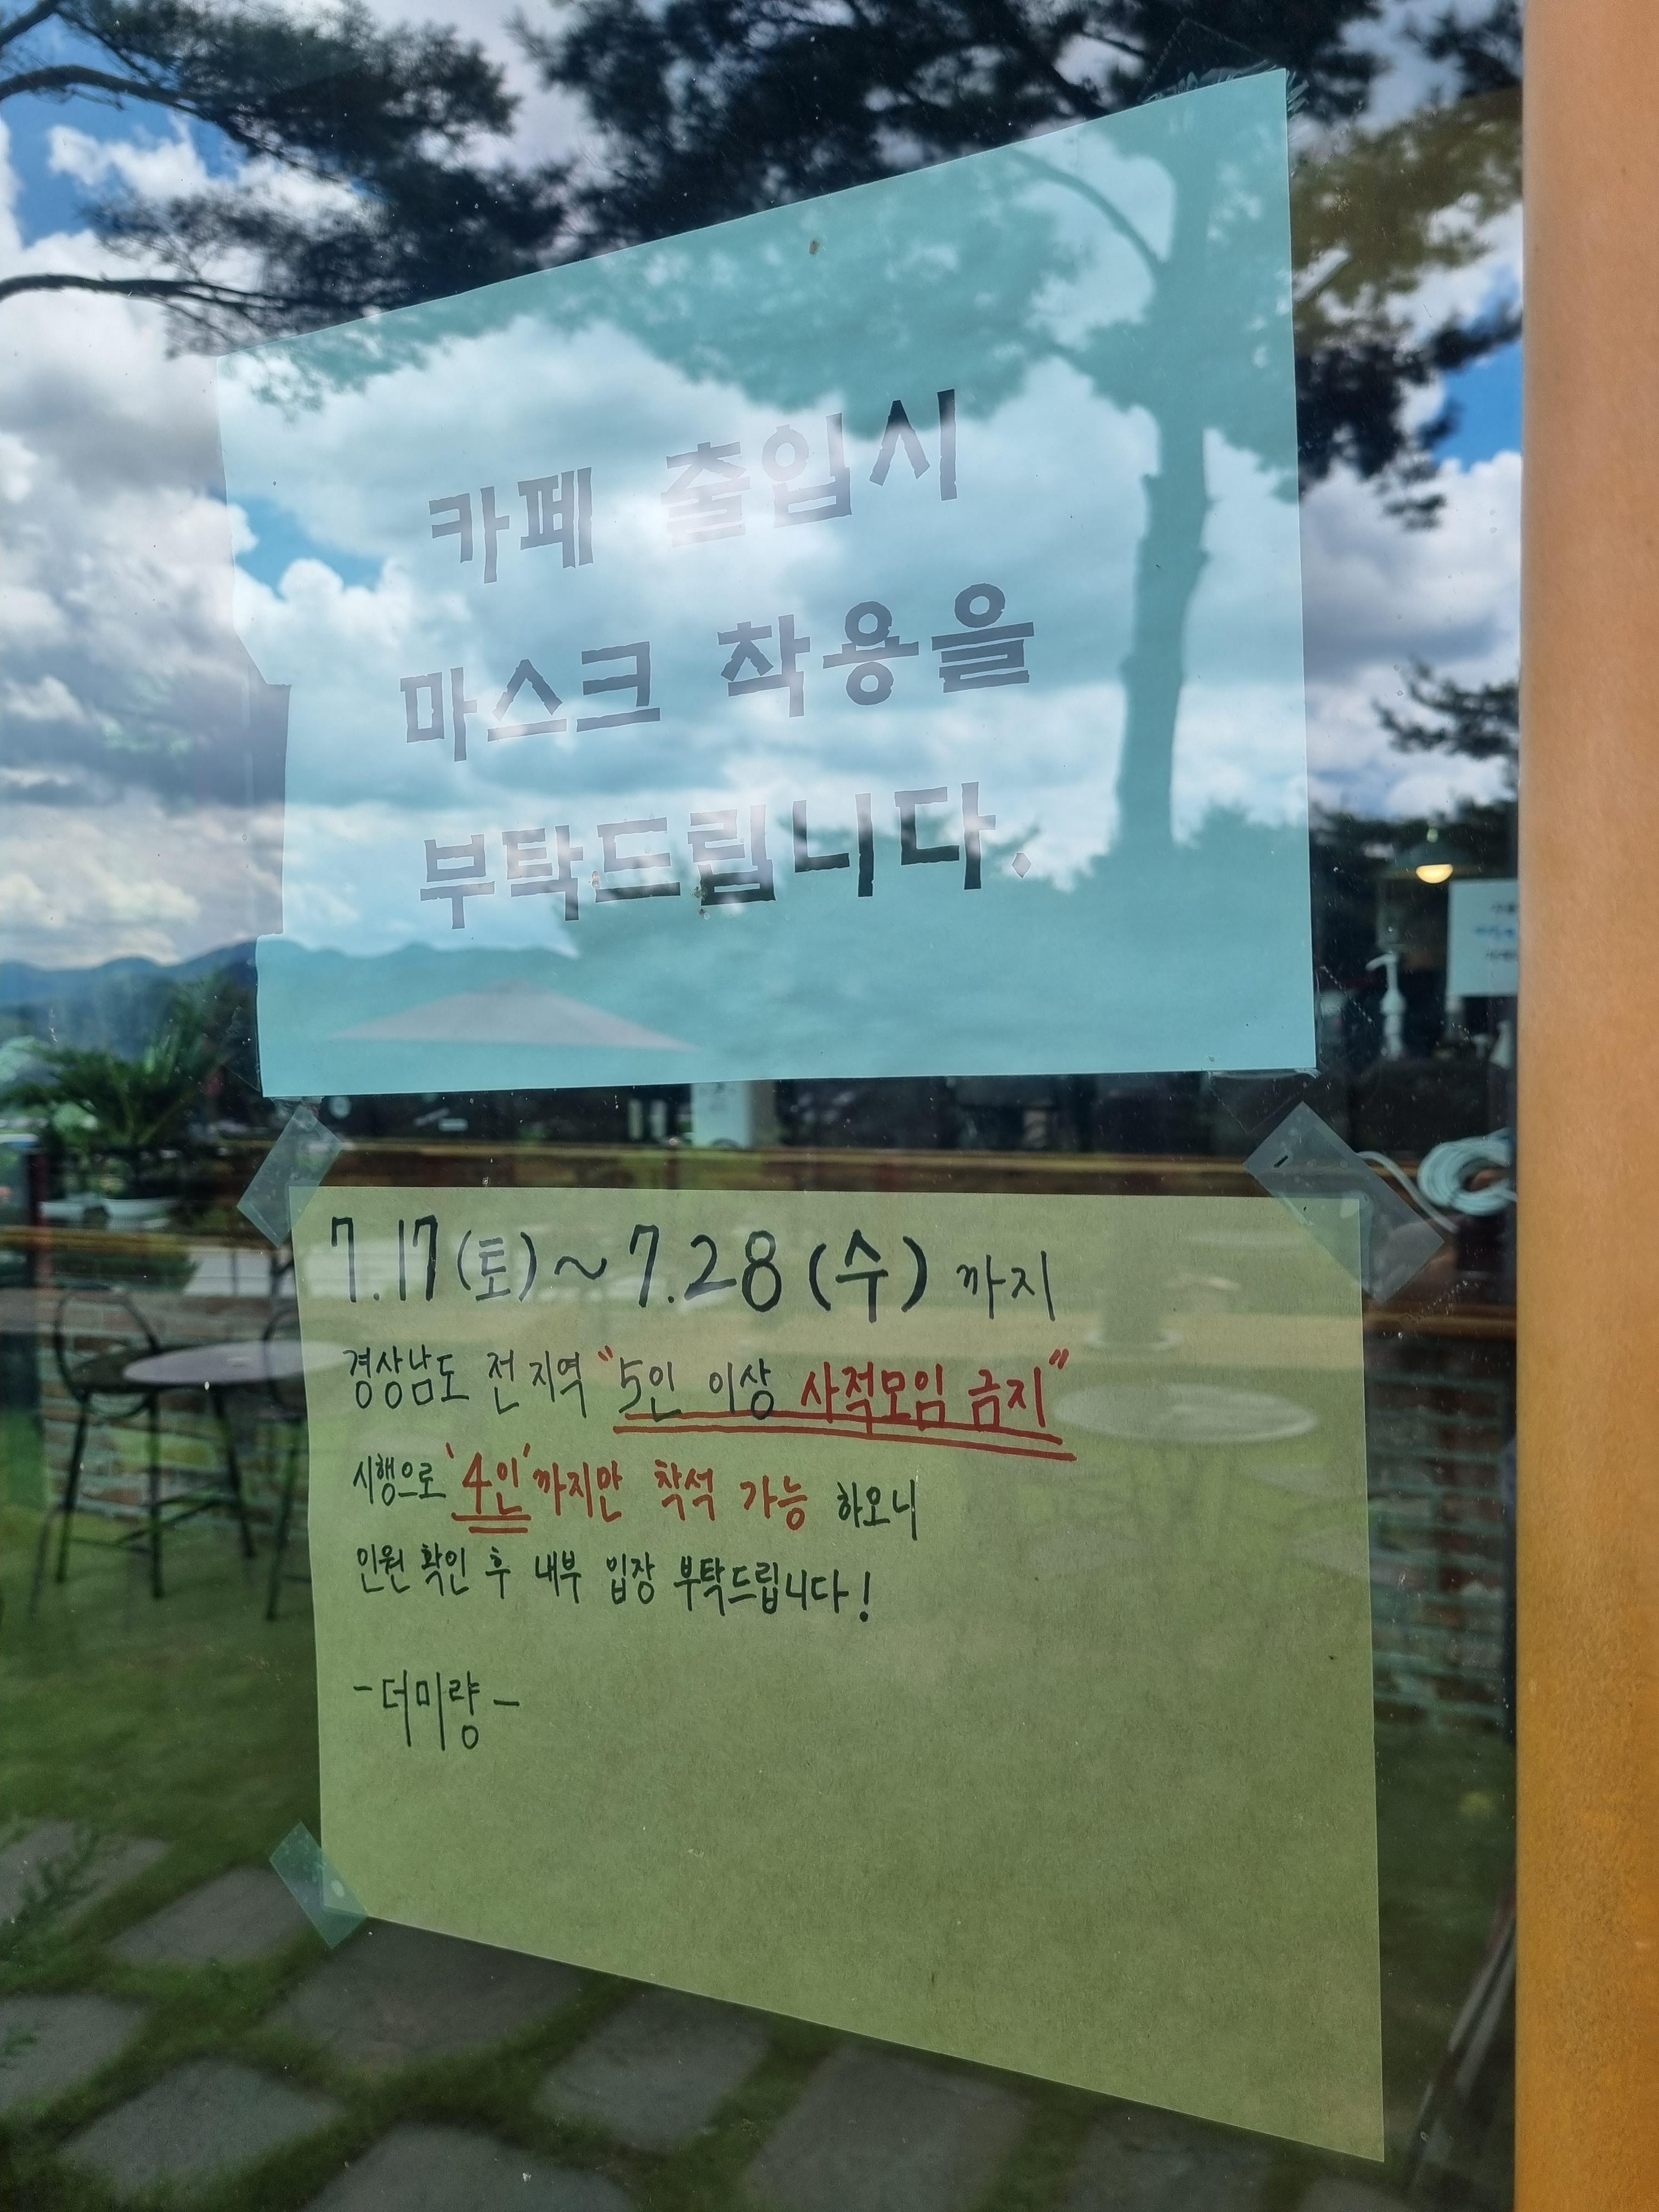 카페 출입시
마스크 착용을
부탁드립니다.
7.17(토)~7.28(수) 까지
경상남도 전 지역 "5인 이상 사적모임 금지"
시행으로 '4인'까지만 착석 가능 하오니
인원 확인 후 내부 입장 부탁드립니다!
-더미량-